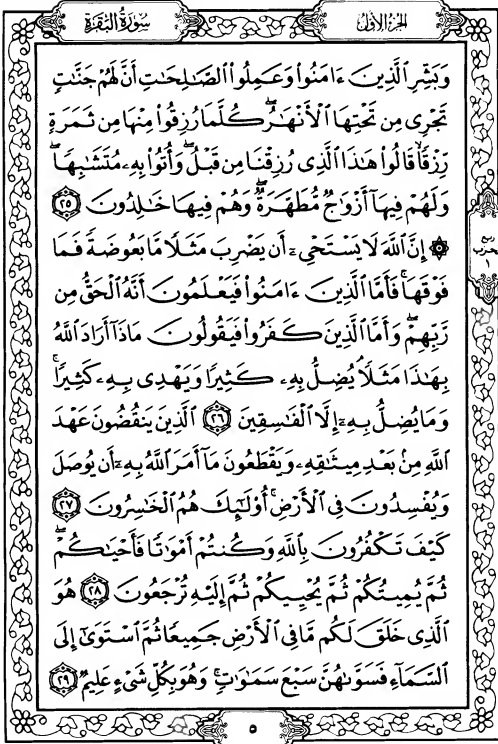 سُورَةُ البَقَرَةِ
الجُزءُ الأوّلُ
وَبَشِّرِ ٱلَّذِينَ ءَامَنُوا۟ وَعَمِلُوا۟ ٱلصَّـٰلِحَـٰتِ أَنَّ لَهُمْ جَنَّـٰتٍ
تَجْرِى مِن تَحْتِهَا ٱلْأَنْهَـٰرُ ۖ كُلَّمَا رُزِقُوا۟ مِنْهَا مِن ثَمَرَةٍ
رِّزْقًا ۙ قَالُوا۟ هَـٰذَا ٱلَّذِى رُزِقْنَا مِن قَبْلُ ۖ وَأُتُوا۟ بِهِۦ مُتَشَـٰبِهًا ۖ
وَلَهُمْ فِيهَآ أَزْوَٰجٌ مُّطَهَّرَةٌ ۖ وَهُمْ فِيهَا خَـٰلِدُونَ ٢٥
۞ إِنَّ ٱللَّهَ لَا يَسْتَحْىِۦٓ أَن يَضْرِبَ مَثَلًا مَّا بَعُوضَةً فَمَا
فَوْقَهَا ۚ فَأَمَّا ٱلَّذِينَ ءَامَنُوا۟ فَيَعْلَمُونَ أَنَّهُ ٱلْحَقُّ مِن
رَّبِّهِمْ ۖ وَأَمَّا ٱلَّذِينَ كَفَرُوا۟ فَيَقُولُونَ مَاذَآ أَرَادَ ٱللَّهُ
بِهَـٰذَا مَثَلًا ۘ يُضِلُّ بِهِۦ كَثِيرًا وَيَهْدِى بِهِۦ كَثِيرًا ۚ
وَمَا يُضِلُّ بِهِۦٓ إِلَّا ٱلْفَـٰسِقِينَ ٢٦ ٱلَّذِينَ يَنقُضُونَ عَهْدَ
ٱللَّهِ مِنۢ بَعْدِ مِيثَـٰقِهِۦ وَيَقْطَعُونَ مَآ أَمَرَ ٱللَّهُ بِهِۦٓ أَن يُوصَلَ
وَيُفْسِدُونَ فِى ٱلْأَرْضِ ۚ أُو۟لَـٰٓئِكَ هُمُ ٱلْخَـٰسِرُونَ ٢٧
كَيْفَ تَكْفُرُونَ بِٱللَّهِ وَكُنتُمْ أَمْوَٰتًا فَأَحْيَـٰكُمْ ۖ
ثُمَّ يُمِيتُكُمْ ثُمَّ يُحْيِيكُمْ ثُمَّ إِلَيْهِ تُرْجَعُونَ ٢٨ هُوَ
ٱلَّذِى خَلَقَ لَكُم مَّا فِى ٱلْأَرْضِ جَمِيعًا ثُمَّ ٱسْتَوَىٰٓ إِلَى
ٱلسَّمَآءِ فَسَوَّىٰهُنَّ سَبْعَ سَمَـٰوَٰتٍ ۚ وَهُوَ بِكُلِّ شَىْءٍ عَلِيمٌ ٢٩
ربع
الحزب
١
٥